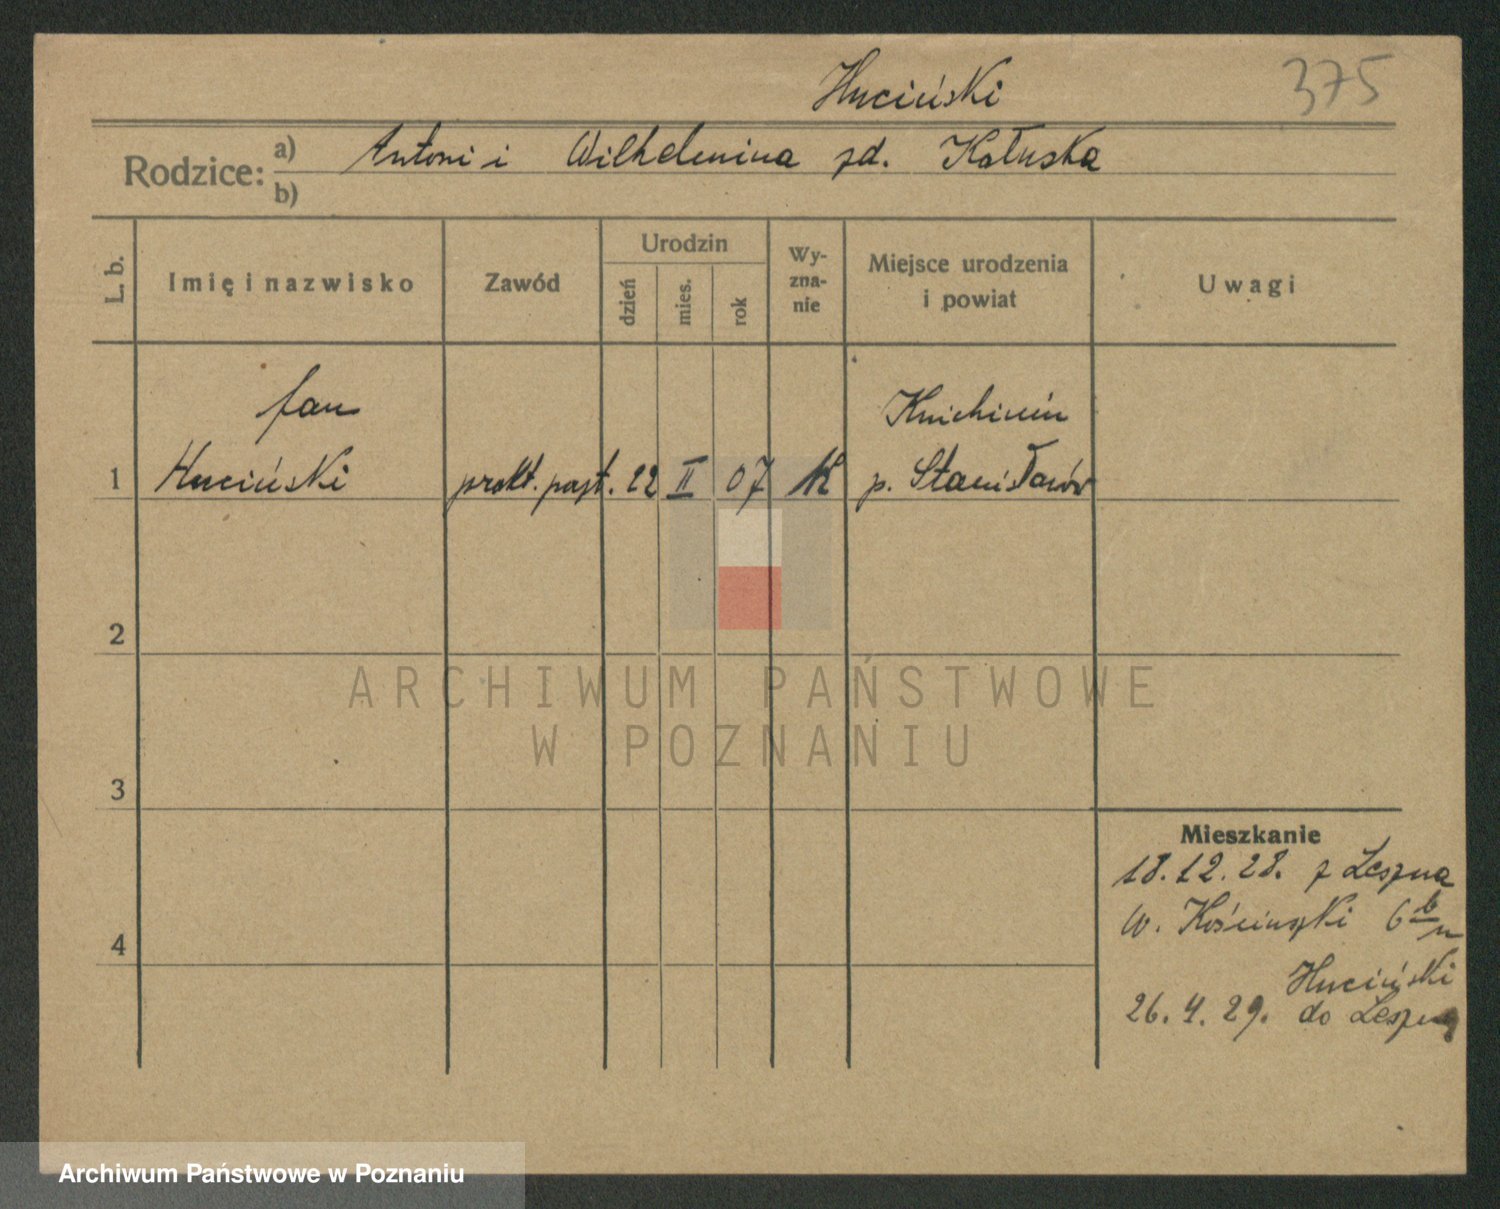 Huciński 375
Rodzice: a) Antoni i Wilhelmina zd. Kałuska
b)
L. b. Imię i nazwisko Zawód Urodzin dzień mies. rok Wyznanie Miejsce urodzenia i powiat Uwagi
Jan Knichinin
1 Huciński prakt. poszt. 22 II 07 K p. Stanisławów
2
ARCHIWUM PAŃSTWOWE
W POZNANIU
3
Mieszkanie
18.12.28. z Leszna
w. Kościuszki 6
4
Huciński
26.4.29. do Leszna
Archiwum Państwowe w Poznaniu